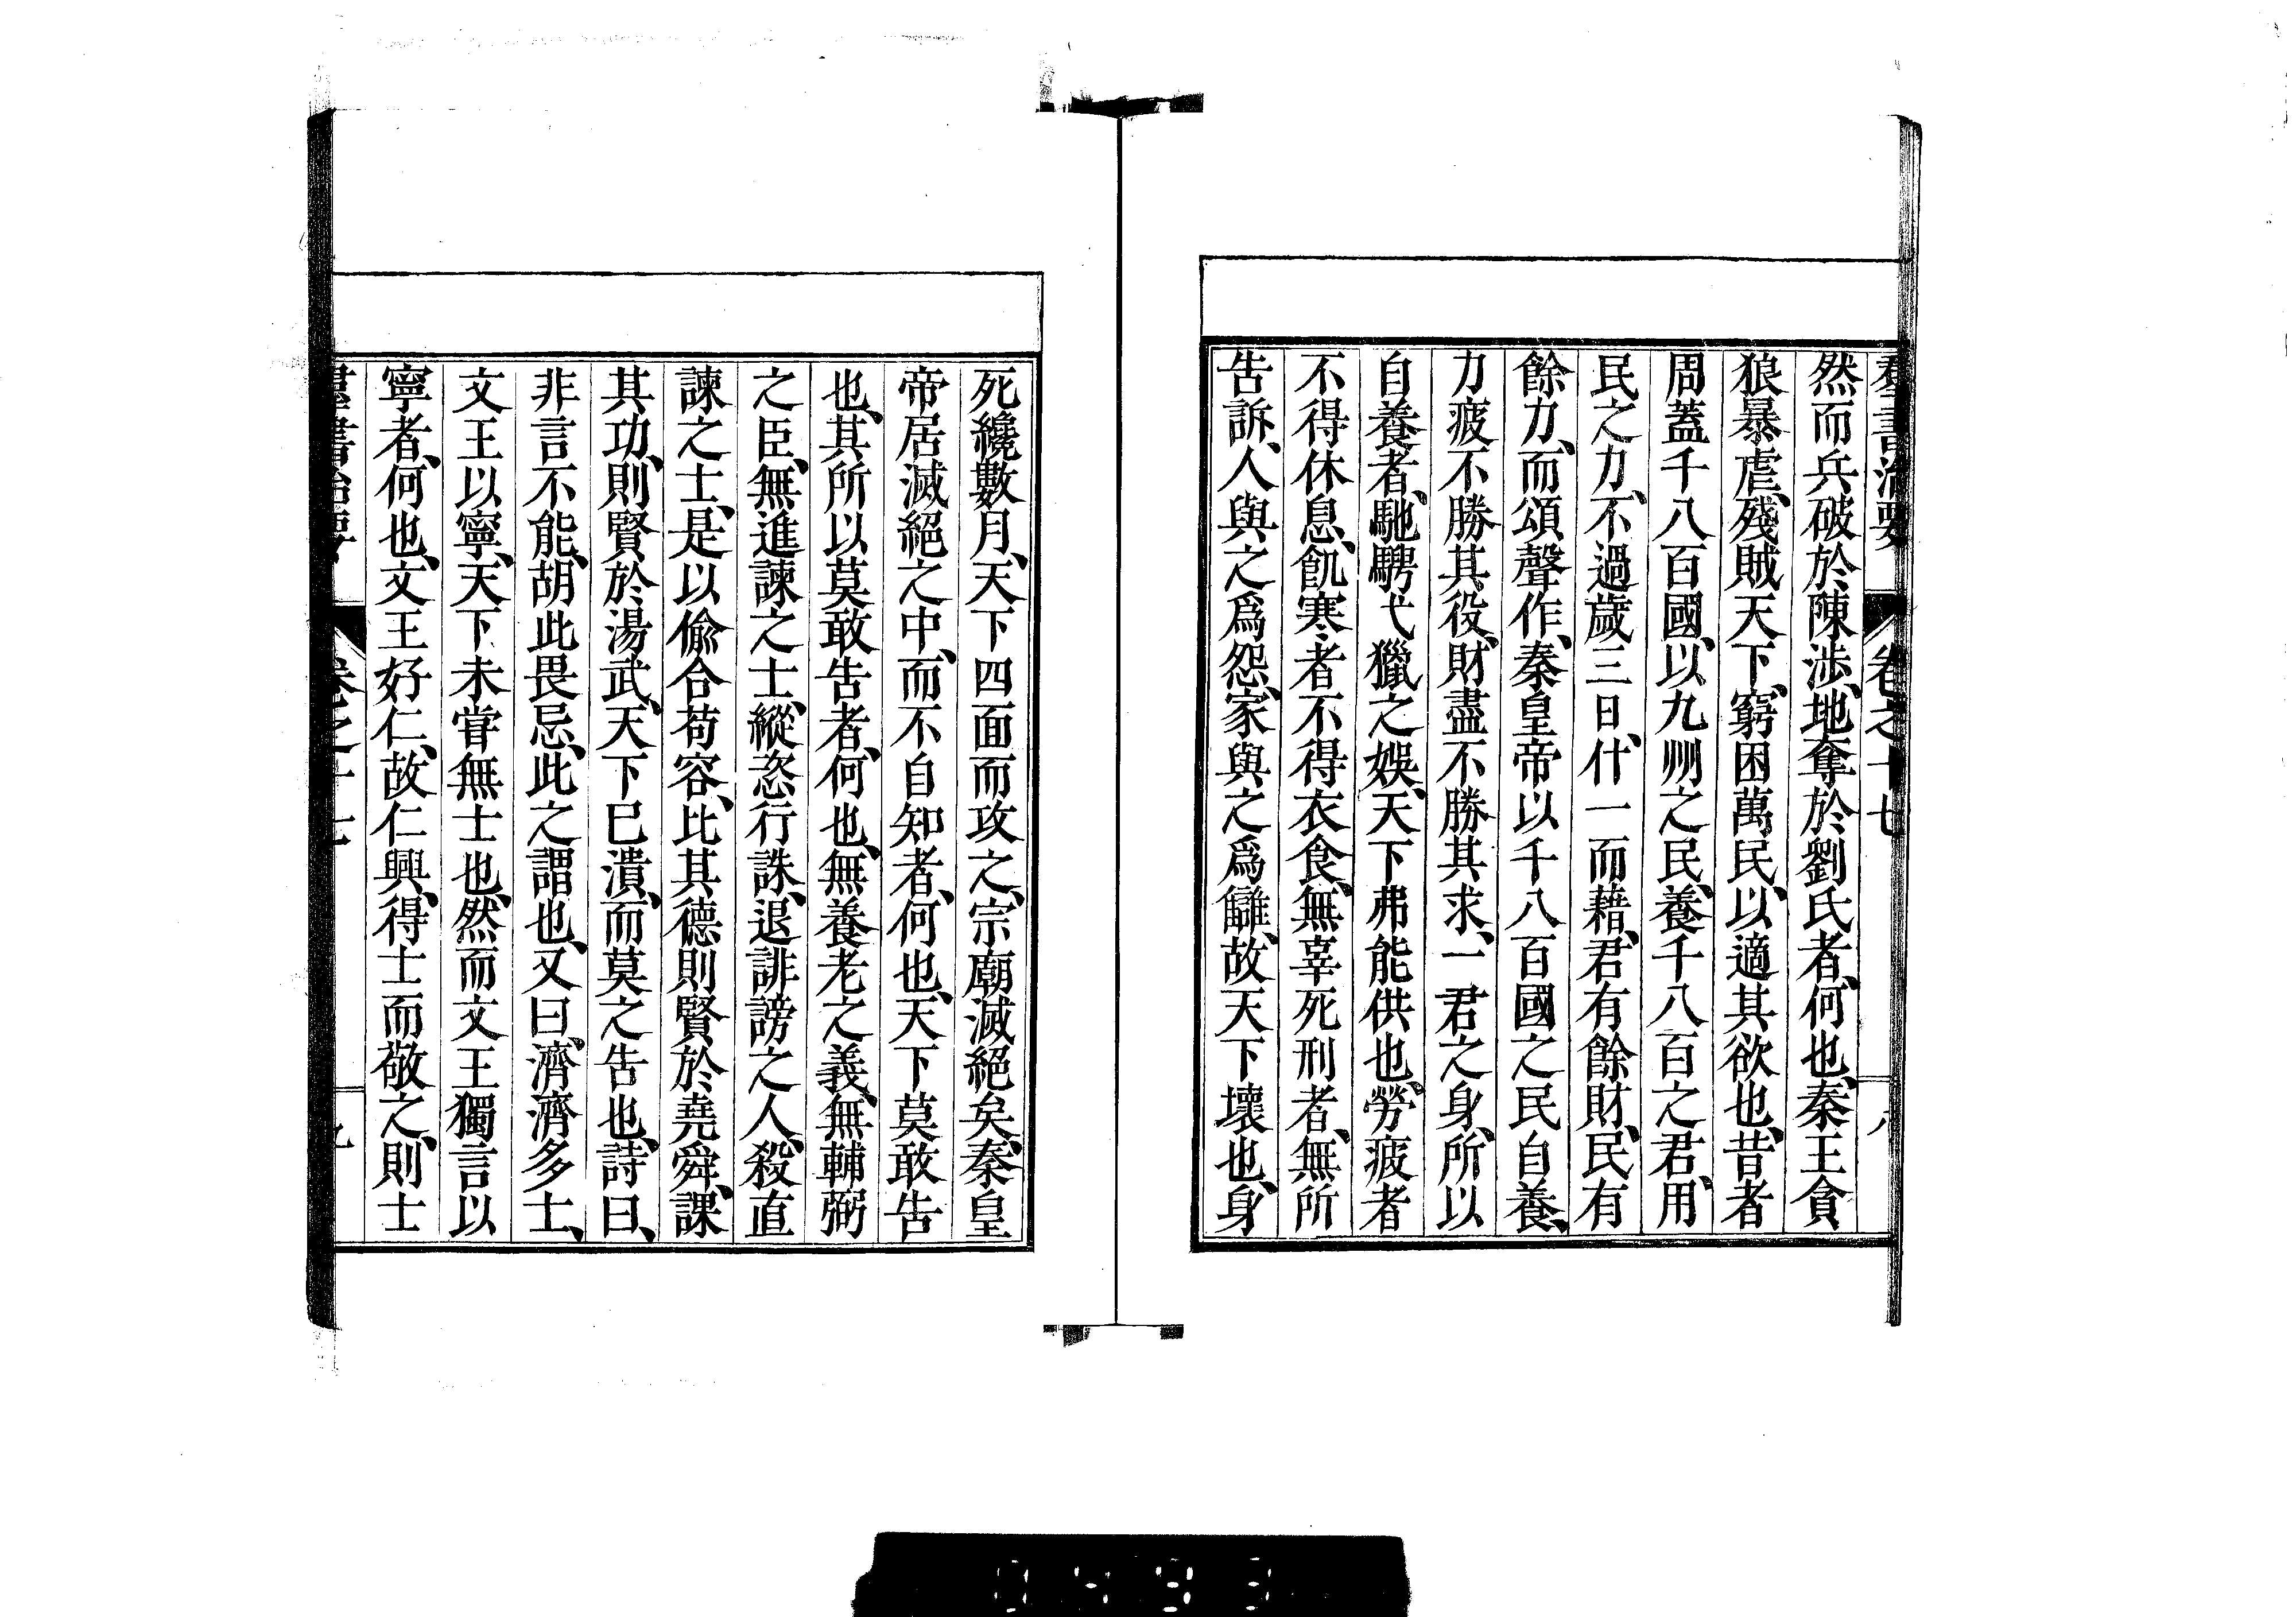 群書治要 卷之十七 八
然而兵破於陳涉、地奪於劉氏者、何也、秦王貪
狼暴虐、殘賊天下、窮困萬民、以適其欲也、昔者
周蓋千八百國、以九州之民、養千八百之君、用
民之力、不過歲三日、什一而藉、君有餘財、民有
餘力、而頌聲作、秦皇帝以千八百國之民自養、
力疲不勝其役、財盡不勝其求、一君之身、所以
自養者、馳騁弋獵之娛、天下弗能供也、勞疲者
不得休息、飢寒者不得衣食、無辜死刑者、無所
告訴、人與之爲怨、家與之爲讎、故天下壞也、身
死纔數月、天下四面而攻之、宗廟滅絕矣、秦皇
帝居滅絕之中、而不自知者、何也、天下莫敢告
也、其所以莫敢告者、何也、無養老之義、無輔弼
之臣、無進諫之士、縱恣行誅、退誹謗之人、殺直
諫之士、是以偷合苟容、比其德則賢於堯舜、課
其功、則賢於湯武、天下已潰、而莫之告也、詩曰、
非言不能、胡此畏忌、此之謂也、又曰、濟濟多士、
文王以寧、天下未嘗無士也、然而文王獨言以
寧者、何也、文王好仁、故仁興、得士而敬之、則士
群書治要 卷之十七 九